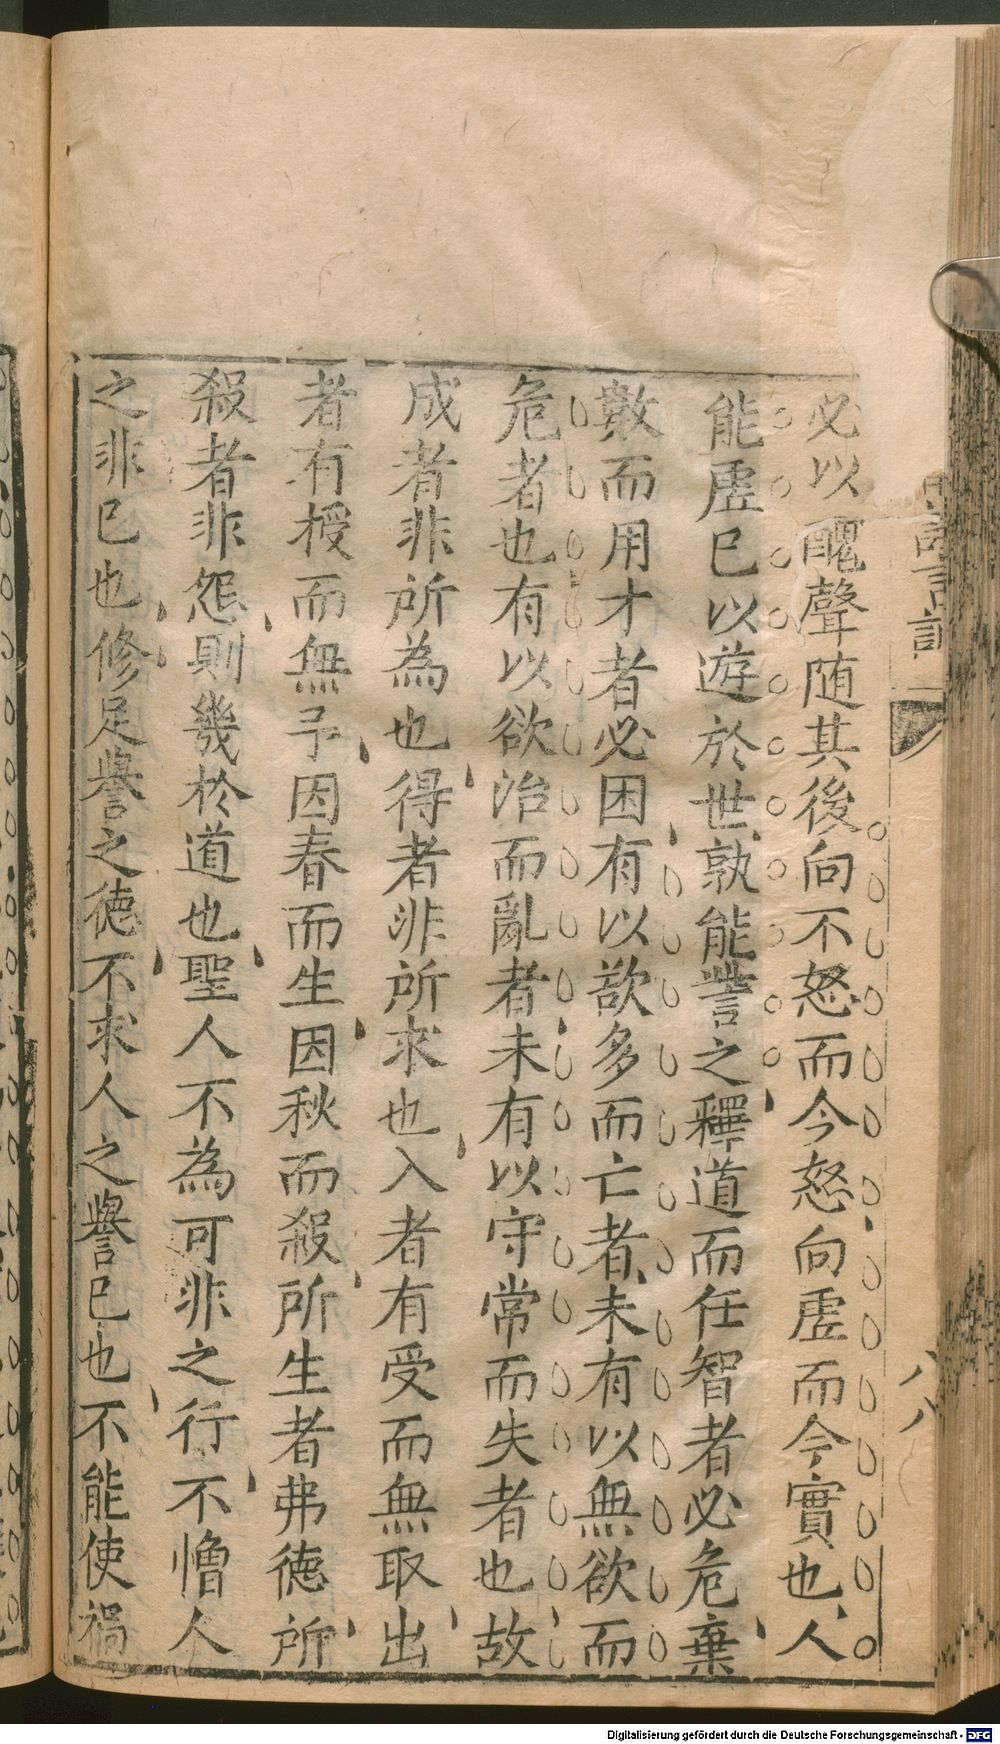 必以醜聲随其後向不怒而今怒向虗而今實也人
能虗已以遊於世孰能訾之釋道而任智者必危棄
數而用才者必困有以欲多而亡者未有以無欲而
危者也有以欲治而亂者未有以守常而失者也故
成者非所為也得者非所求也入者有受而無取出
者有授而無予因春而生因秋而殺所生者弗德所
殺者非怨則幾於道也聖人不為可非之行不憎人
之非已也修足譽之德不求人之譽已也不能使禍
Digitalisierung gefördert durch die Deutsche Forschungsgemeinschaft - DFG